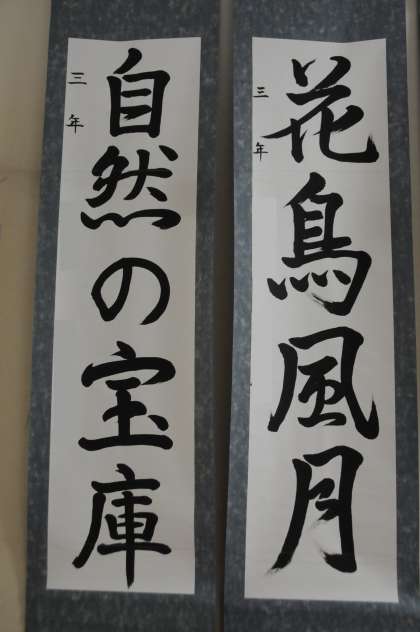 花鳥風月
三年
自然の宝庫
三年